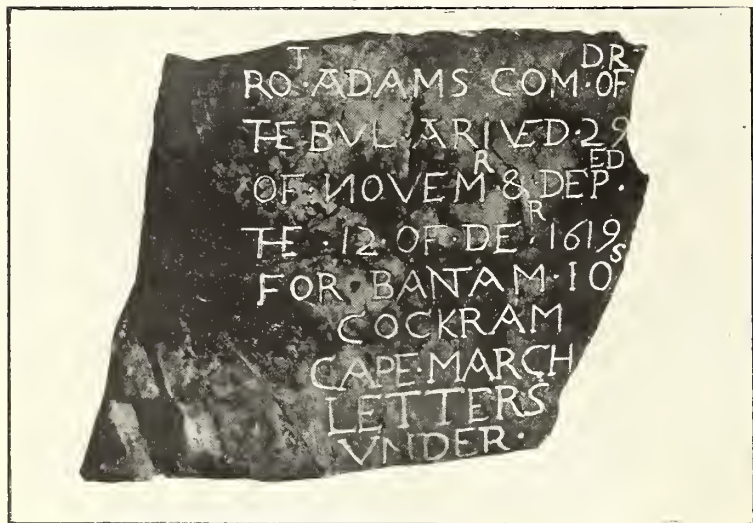 ROᵀ·ADAMS COM·ᴰᴿOF
THE BVL ARIVED·29
OF·NOVEMᴿ & DEP·ᴱᴰ
THE·12·OF·DEᴿ·1619
FOR·BANTAM·IOˢ
COCKRAM
CAPE·MARCH
LETTERS
VNDER·